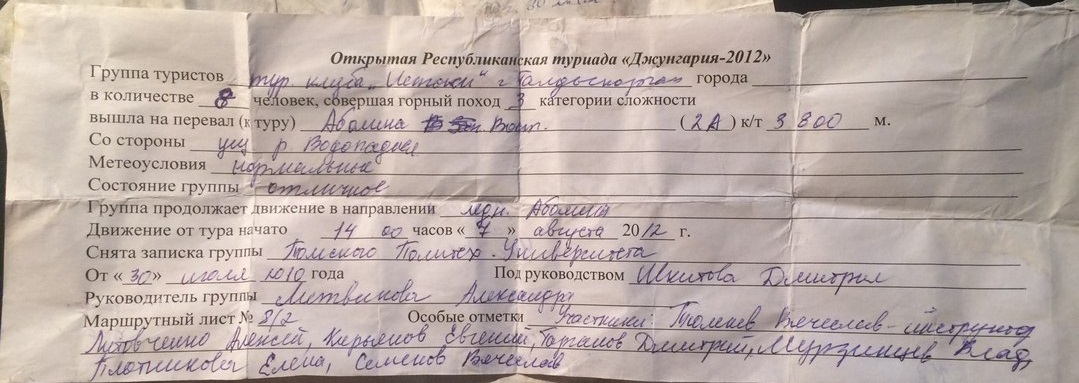 Открытая Республиканская туриада «Джунгария-2012»
Группа туристов тур клуба „Истоки“ г Талдыкорган города
в количестве 8 человек, совершая горный поход 3 категории сложности
вышла на перевал (к туру) Аболина Вост. (2А) к/т 3 800 м.
Со стороны ущ р Водопадная
Метеоусловия нормальные
Состояние группы отличное
Группа продолжает движение в направлении ледн. Аболина
Движение от тура начато 14 00 часов « 7 » августа 2012 г.
Снята записка группы Томского Политех. Университета
От «30» июля 2010 года Под руководством Шкитова Дмитрия
Руководитель группы Литвинова Александра
Маршрутный лист № 8/2 Особые отметки Участники: Тюленев Вячеслав-инструктор
Алексей, Кирьянов Евгений, Дмитрий, Мурзинцев Влад,
Плотникова Елена, Семенов Вячеслав